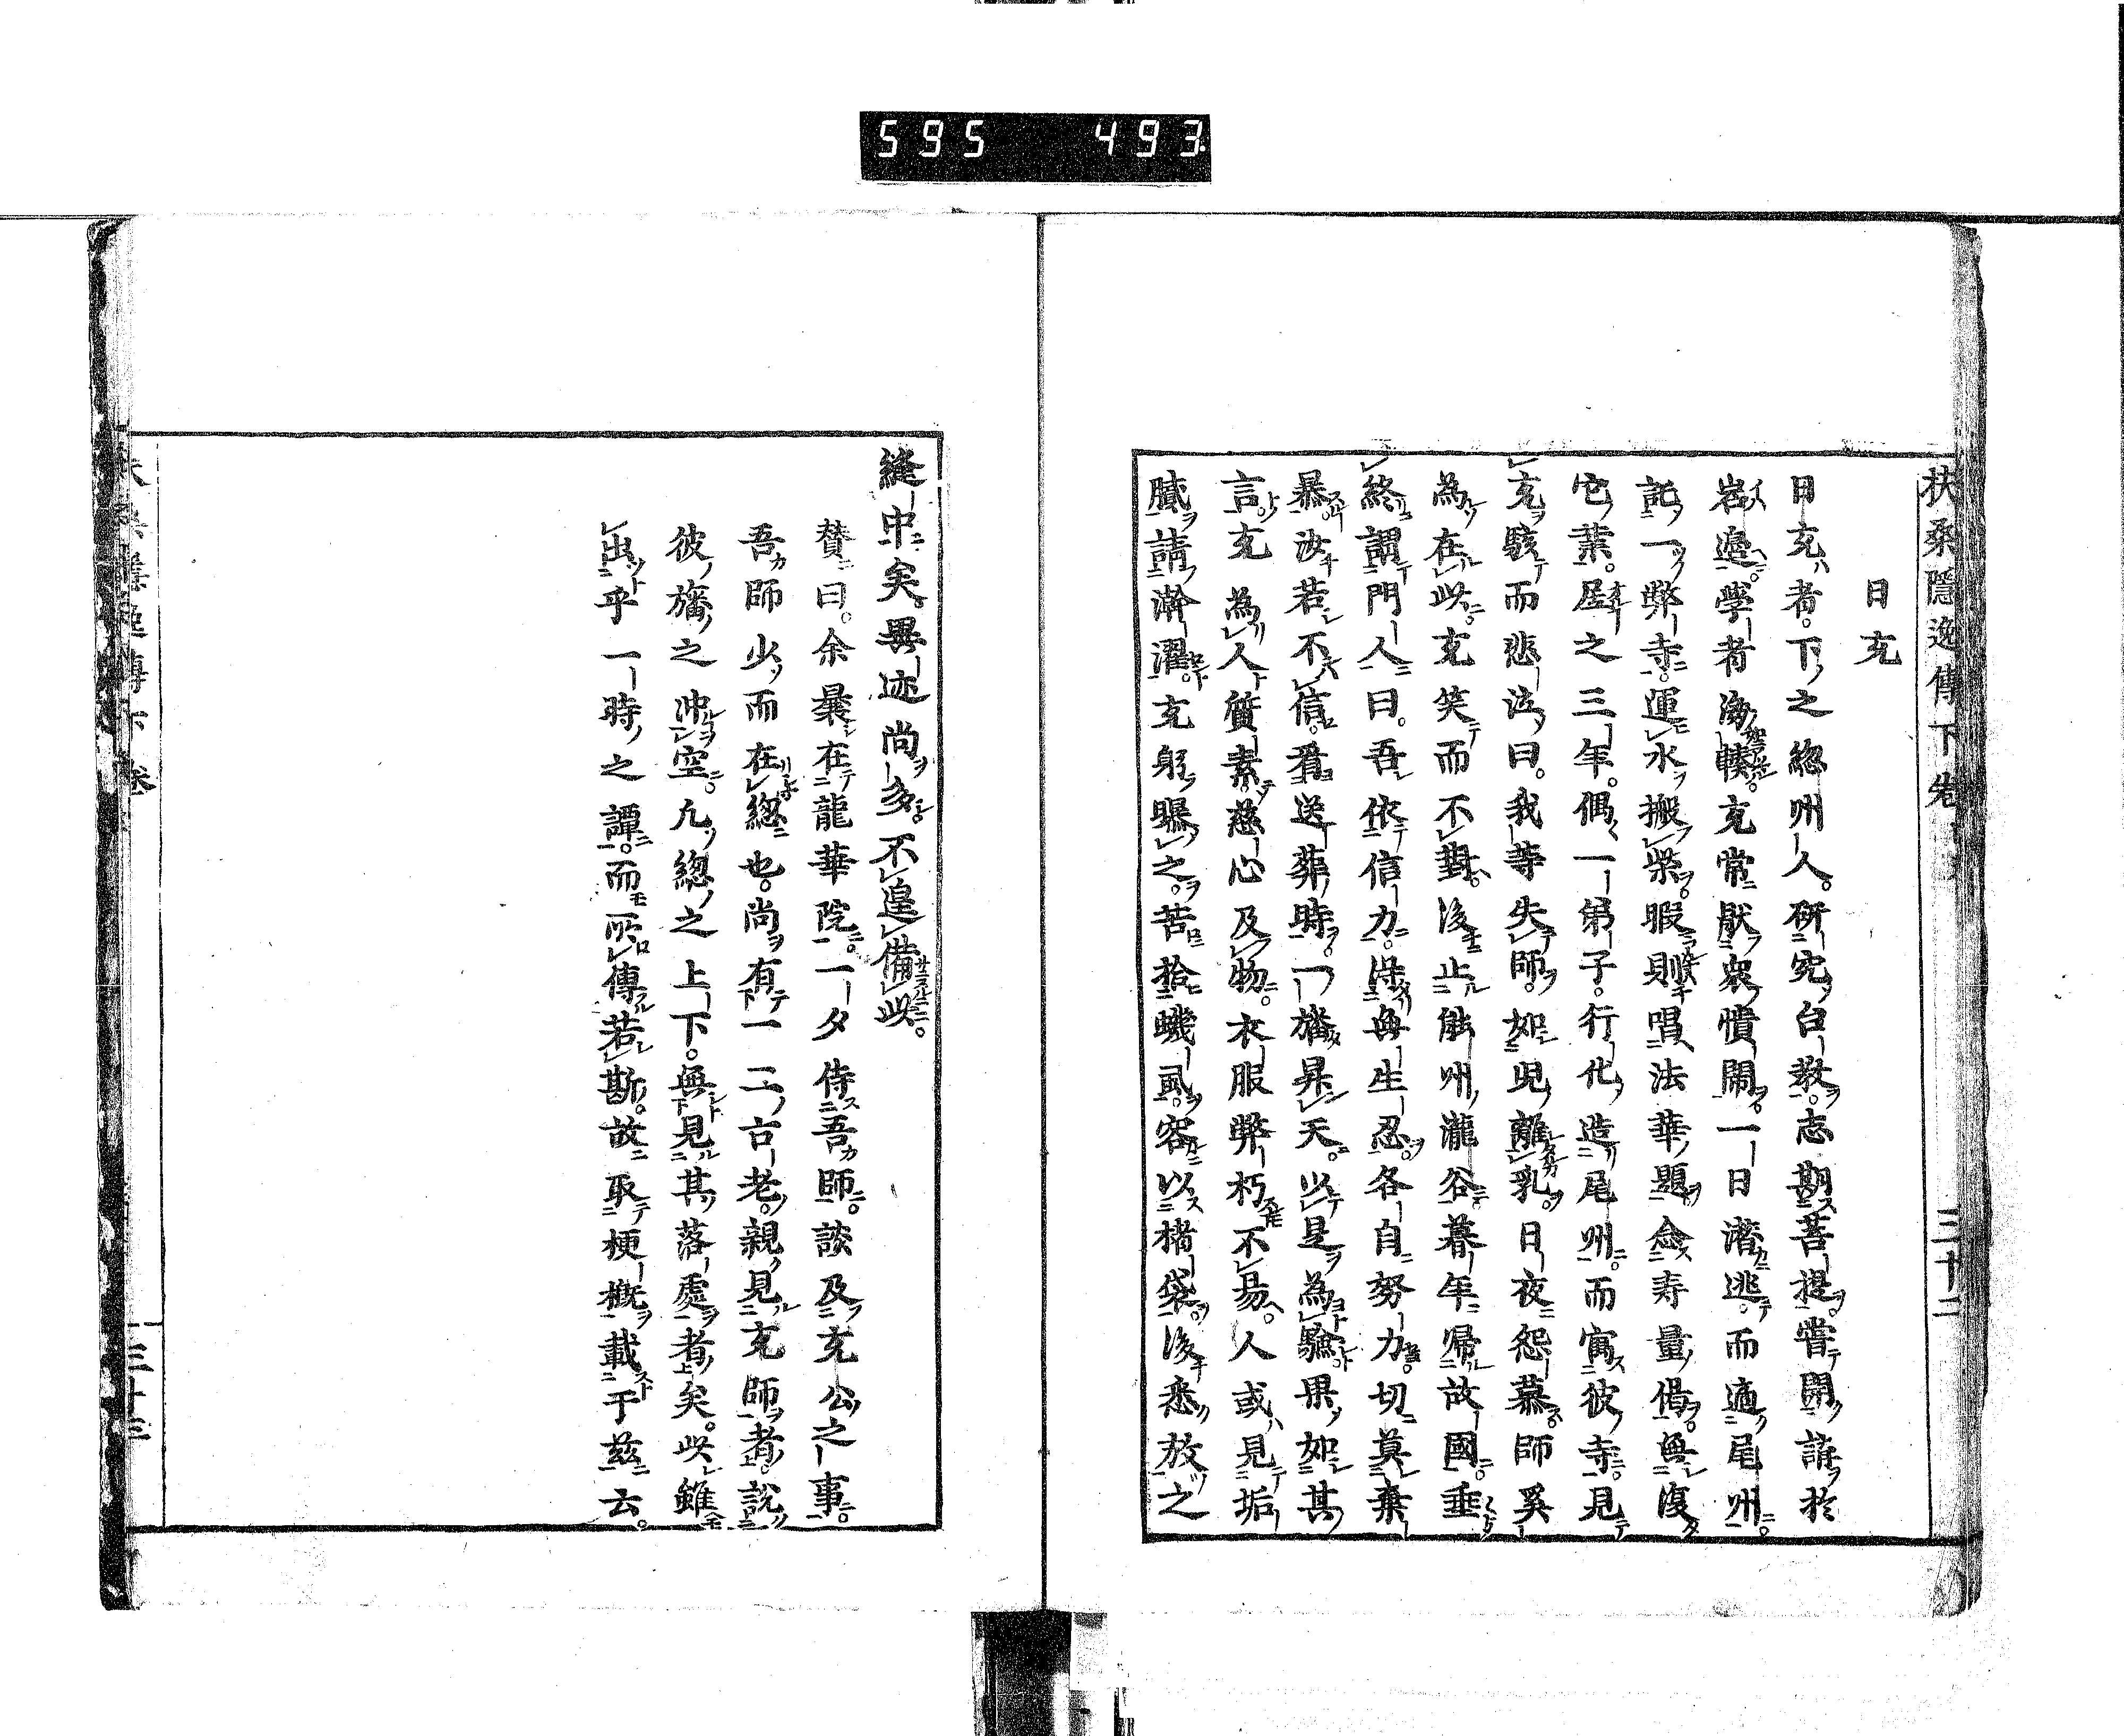 595 493.
扶桑隱逸傳下卷 三十二
日充
日充者。下之総州人。研究台教。志期菩提。嘗開講於
岩邊。學者海輳。充常厭衆憒鬧。一日潛逃。而適尾州。
託一弊寺。運水搬柴。暇則唱法華題。念寿量偈。無復
它業。居之三年。偶一弟子。行化造尾州。而寓彼寺。見
充駭而悲泣曰。我等失師。如児離乳。日夜怨慕。師奚
為在此。充笑而不對。後止能州瀧谷。暮年帰故國。垂
終謂門人曰。吾依信力。得無生忍。各自努力。切莫棄
暴。汝若不信。看送葬時。一旛昇天。以是為驗。果如其
言。充為人質素。慈心及物。衣服弊朽不易。人或見垢
膩。請澣濯。充躬曝之。苦拾蟣虱。容以楮袋。後悉放之
縫中矣。異迹尚多。不遑備此。
賛曰。余曩在龍華院。一夕侍吾師。談及充公之事。
吾師少而在総也。尚有一二古老。親見充師者。説
彼旛之冲空。凡総之上下。無見其落處者矣。此雖
出乎一時之譚。而所傳若斯。故取梗概載于茲云。
三十三